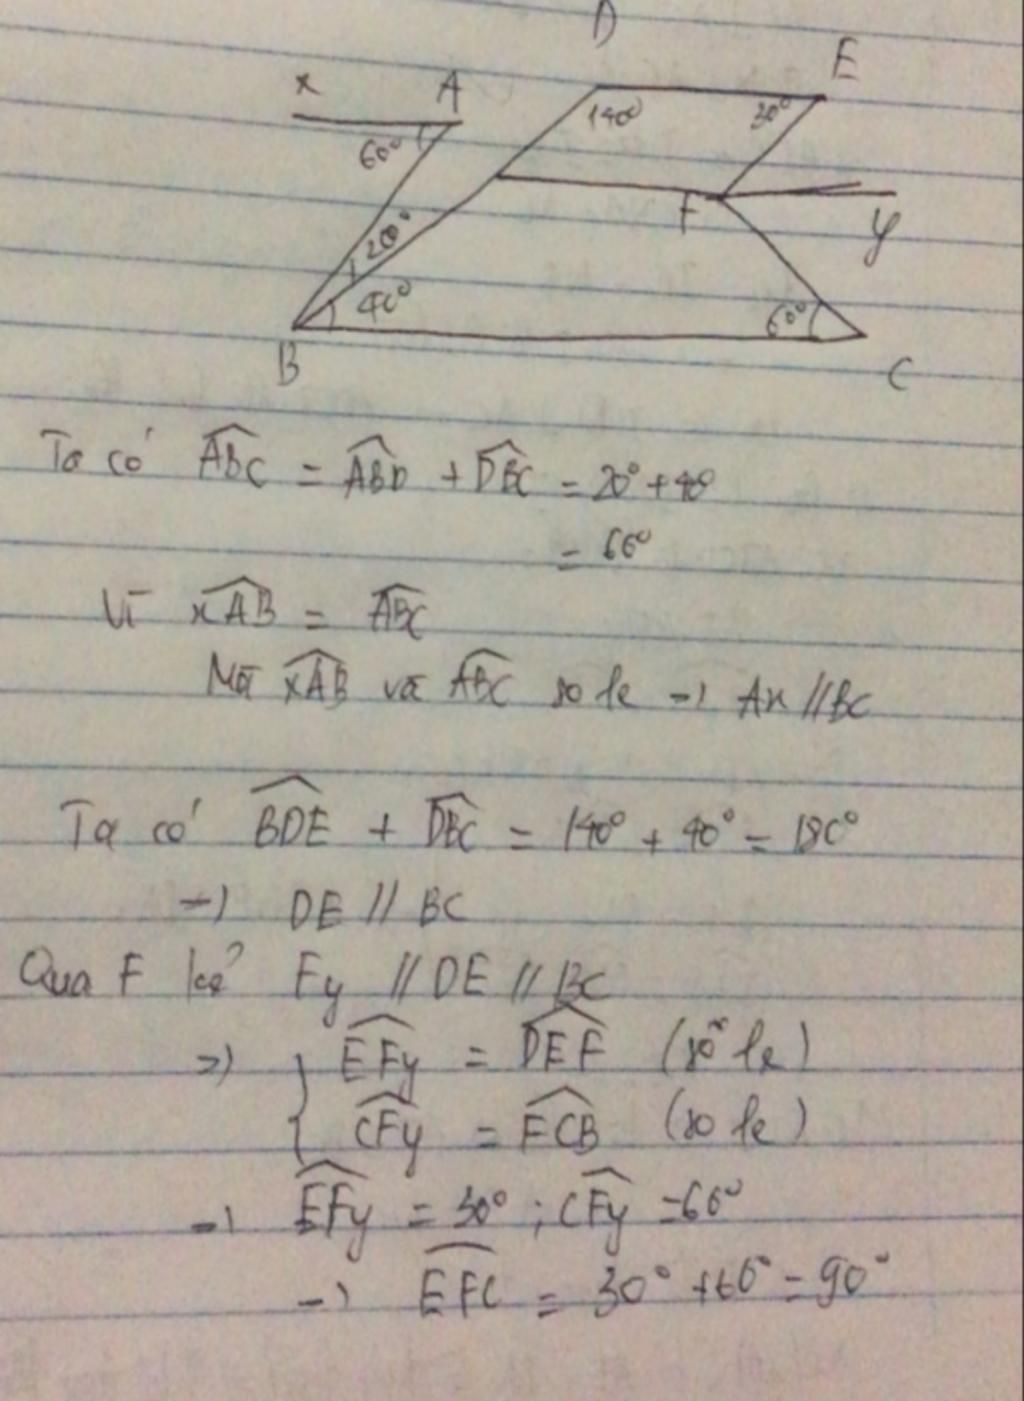 D
x A E
140° 30°
60°
F y
20°
40° 60°
B C
Ta có ABC = ABD + DBC = 20° + 40
= 60°
Vì xAB = ABC
Mà xAB và ABC so le → Ax // BC
Ta có BDE + DBC = 140° + 40° = 180°
→ DE // BC
Qua F kẻ Fy // DE // BC
=> { EFy = DEF (so le)
CFy = FCB (so le)
→ EFy = 30° ; CFy = 60°
→ EFC = 30° + 60° = 90°